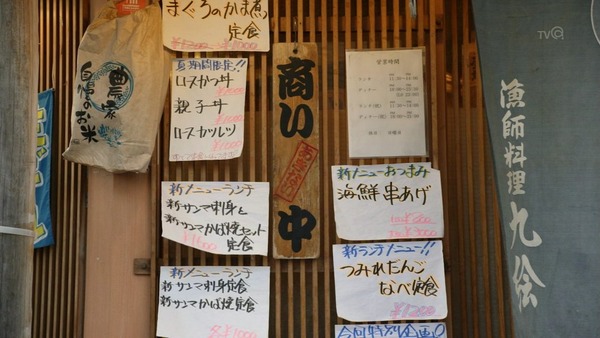 まぐろのかま煮
定食
農家
自慢のお米
夏期間限定!!
ロースかつ丼
¥1000
親子丼
¥1000
ロースカツレツ
¥1000
新メニューランチ
新サンマ刺身と
新サンマかば焼セット
定食
新メニューランチ
新サンマ刺身定食
新サンマかば焼定食
各¥1000
商い中
営業時間
ランチ
ディナー
新メニューおつまみ
海鮮串あげ
新ランチメニュー!!
つみれだんご
なべ定食
¥1200
今回特別企画
漁師料理 九絵
TVQ